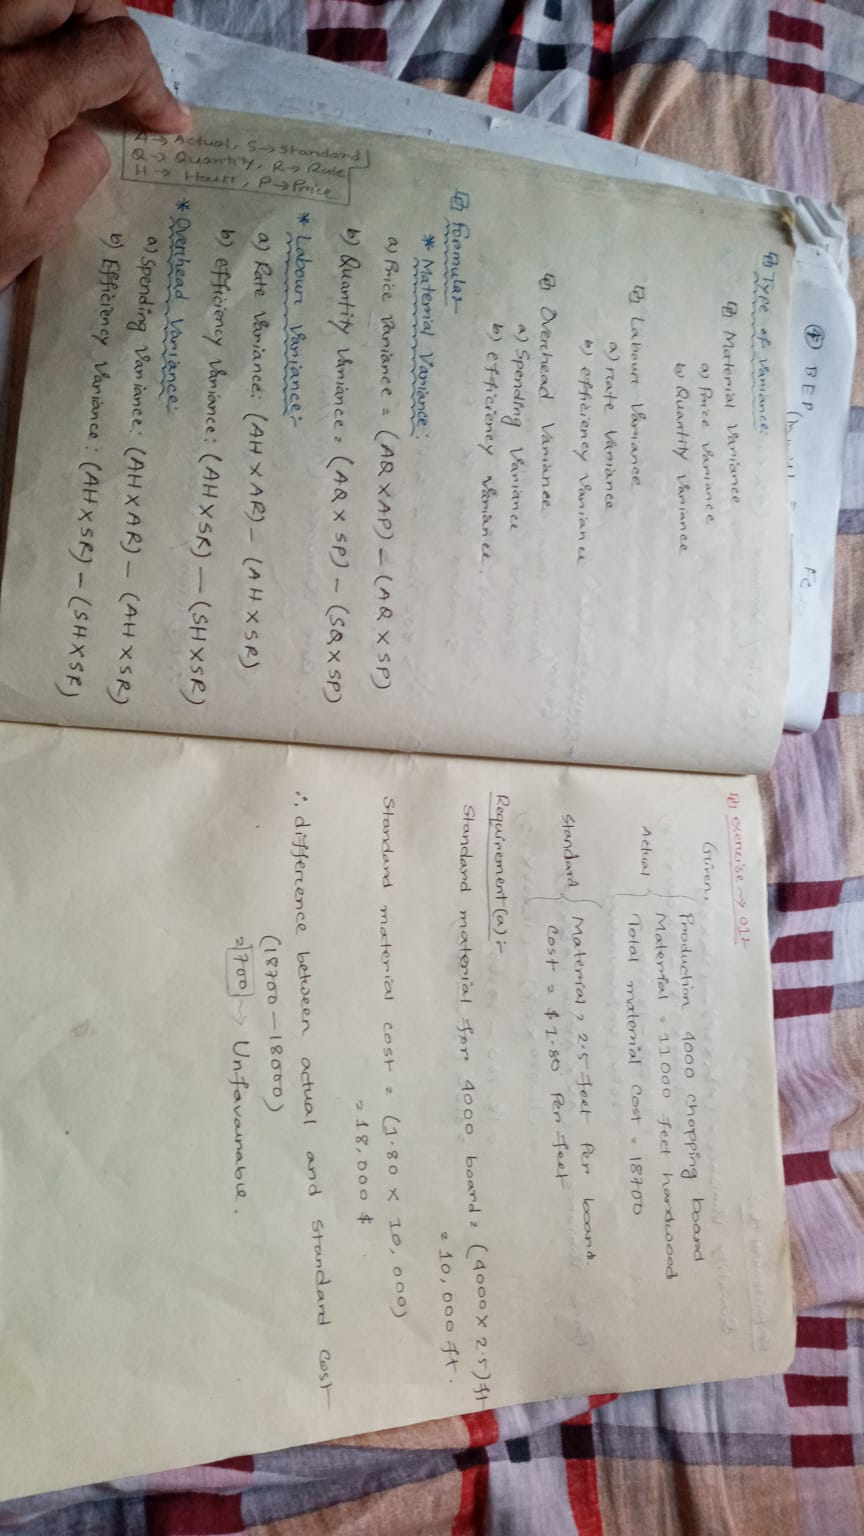 ④ BEP
FC
Type of Variance:
Material Variance
a) Price Variance
b) Quantity Variance
Labour Variance
a) rate Variance
b) efficiency Variance
Overhead Variance
a) Spending Variance
b) efficiency Variance.
Formula:-
* Material Variance:
a) Price Variance = (AQ X AP) - (AQ X SP)
b) Quantity Variance = (AQ X SP) - (SQ X SP)
* Labour Variance:-
a) Rate Variance: (AH X AR) - (AH X SR)
b) efficiency Variance: (AH X SR) - (SH X SR)
* Overhead Variance:-
a) Spending Variance: (AH X AR) - (AH X SR)
b) Efficiency Variance: (AH X SR) - (SH X SR)
A → Actual, S → Standard
Q → Quantity, R → Rate
H → Hour, P → Price
exercise → 01:-
Given,
Production 4000 chopping board
Actual Material = 11000 feet hardwood
Total material cost = 18700
Standard Material = 2.5 feet per board.
Cost = $ 1.80 Per feet
Requirement (a):-
Standard material for 4000 board = (4000 X 2.5) ft
= 10,000 ft.
Standard material cost = (1.80 X 10,000)
= 18,000 $
∴ difference between actual and standard cost
(18700 - 18000)
= 700 → Unfavourable.